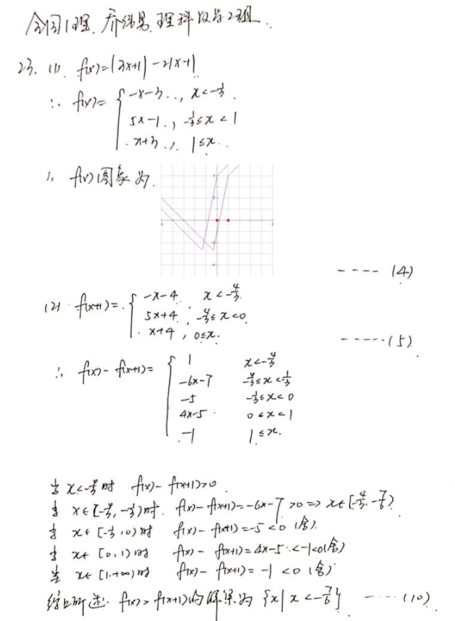 全国1理.乔继昂.理科数学2组.
23. (1) f(x)=|3x+1|-2|x-1|
∴ f(x)= { -x-3 .., x<-1/3 .
5x-1 , , -1/3≤x<1
x+3 , . 1≤x..
∴ f(x)图象为.
---- (4)
(2) f(x+1)= . { -x-4 . x<-4/3
5x+4 . -4/3≤x<0.
x+4 , 0≤x.
-----(5)
∴ f(x)-f(x+1)= { 1 x<-4/3
-6x-7 -4/3≤x<-1/3
-5 -1/3≤x<0
4x-5 0≤x<1
-1 1≤x.
当 x<-4/3 时 f(x)-f(x+1)>0 .
当 x∈[-4/3,-1/3)时. f(x)-f(x+1)=-6x-7>0 => x∈[-4/3,-7/6)
当 x∈[-1/3,0)时 f(x)-f(x+1)=-5<0 (舍).
当 x∈[0,1)时 f(x)-f(x+1)=4x-5.<-1<0(舍)
当 x∈[1.+∞)时 f(x)-f(x+1)=-1<0 (舍)
综上所述. f(x)>f(x+1)的解集为 {x|x<-7/6} ----(10)